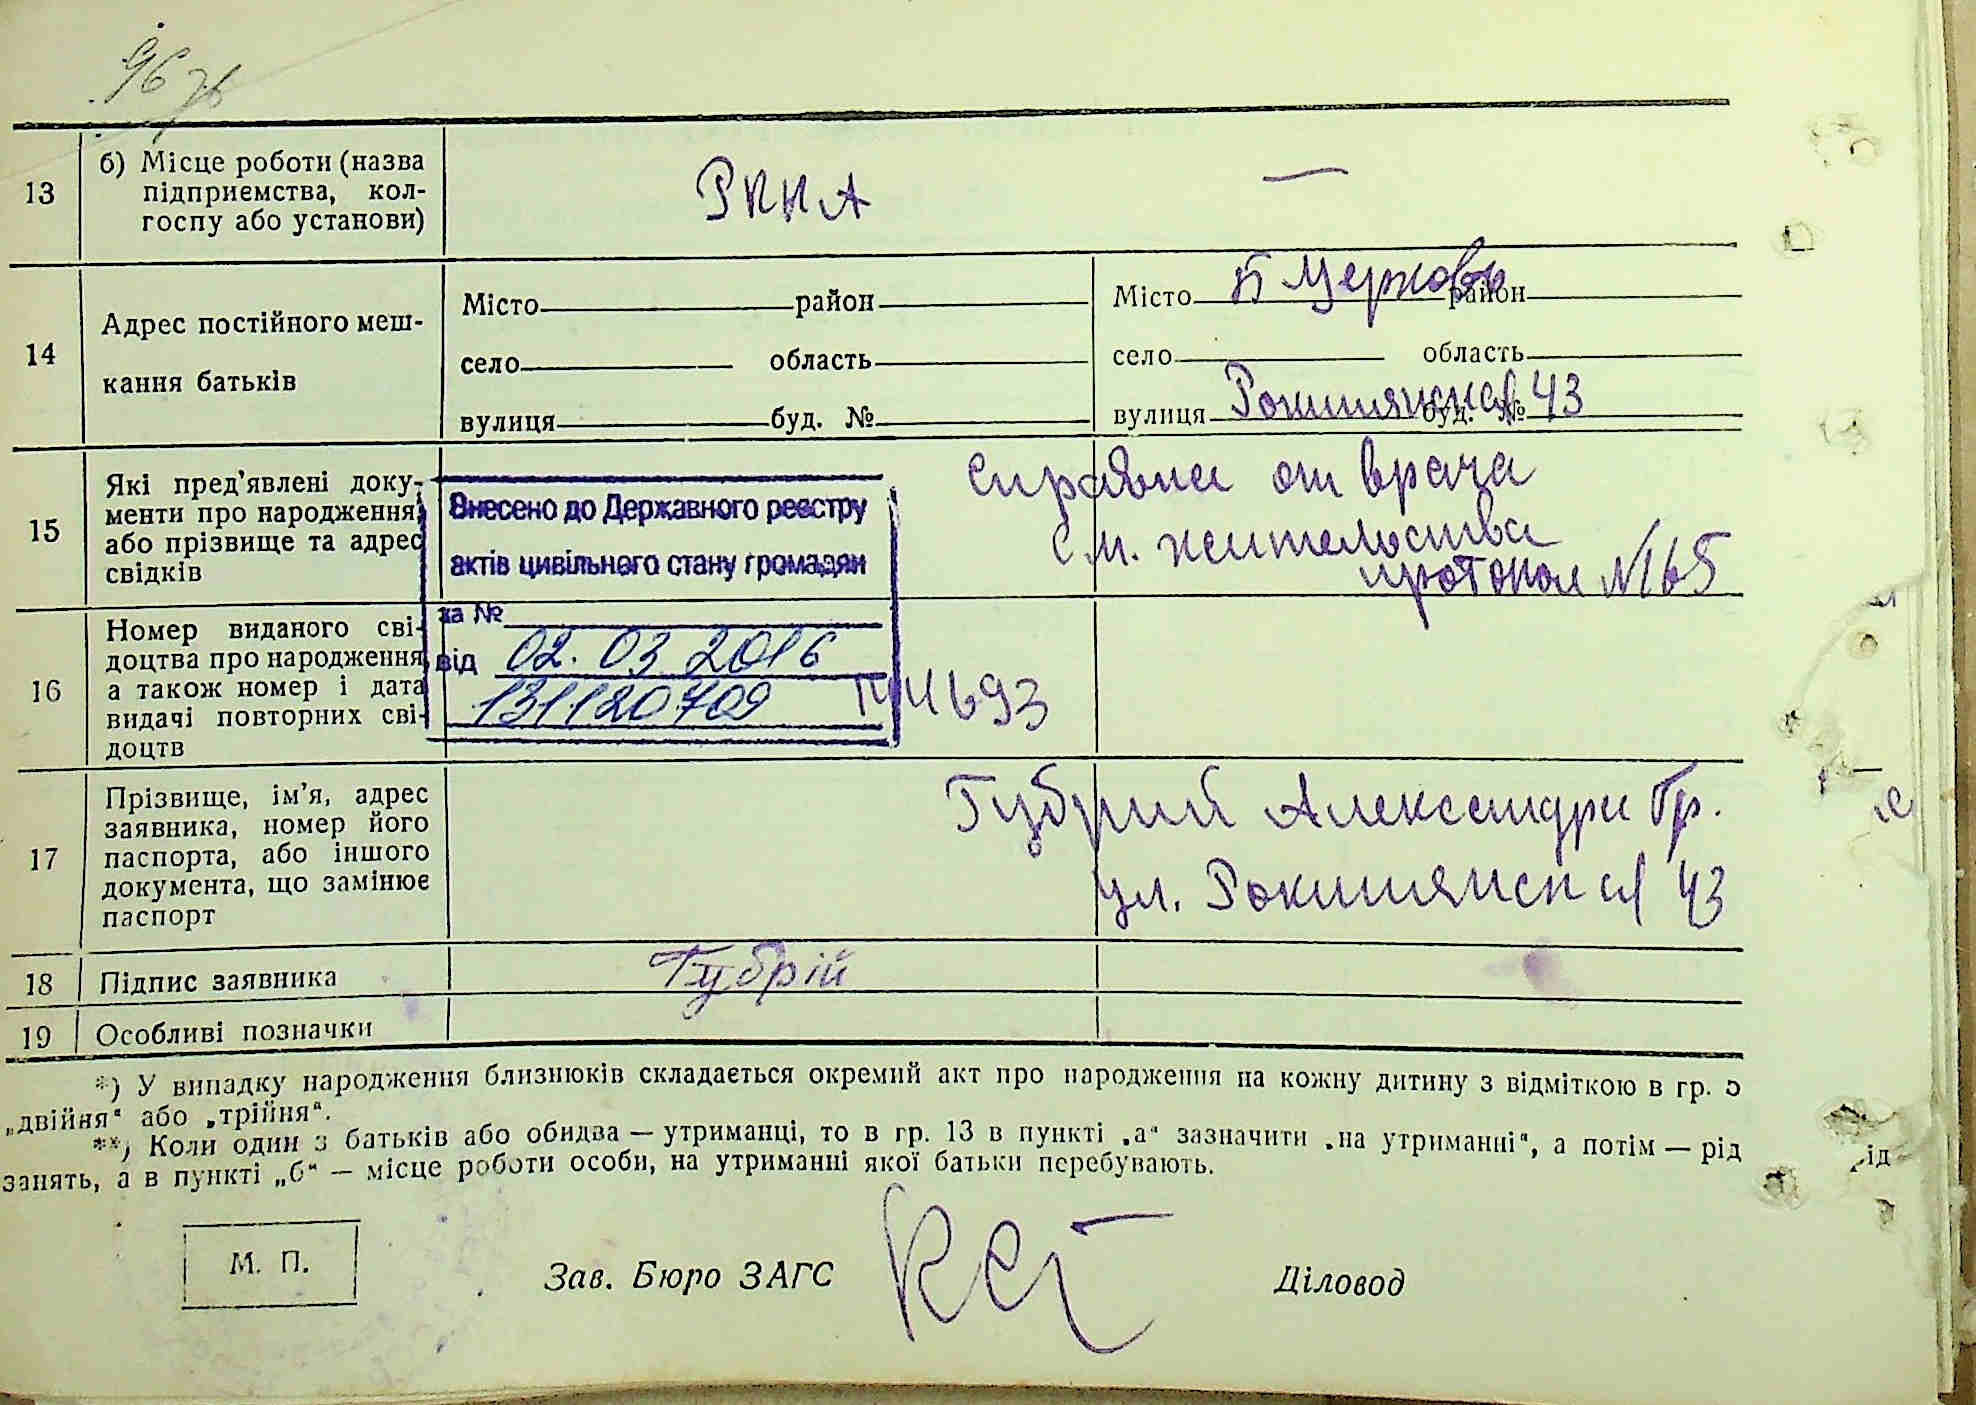 96
13
б) Місце роботи (назва
підприємства, кол-
госпу або установи)
РККА
—
14
Адрес постійного меш-
кання батьків
Місто район
село область
вулиця буд. №
Місто Б Церковь район
село область
вулиця Рокитянская буд. № 43
15
Які пред'явлені доку-
менти про народження,
або прізвище та адрес
свідків
справка от врача
с м. жительства
протокол №165
Внесено до Державного реєстру
актів цивільного стану громадян
за №
від 02.03.2016
131120709
16
Номер виданого сві-
доцтва про народження,
а також номер і дата
видачі повторних сві-
доцтв
17
Прізвище, ім'я, адрес
заявника, номер його
паспорта, або іншого
документа, що замінює
паспорт
Губрий Александра Гр.
ул. Рокитянская 43
18
Підпис заявника
Губрій
19
Особливі позначки
*) У випадку народження близнюків складається окремий акт про народження на кожну дитину з відміткою в гр. 5
„двійня“ або „трійня“.
**) Коли один з батьків або обидва — утриманці, то в гр. 13 в пункті „а“ зазначити „на утриманні“, а потім — рід
занять, а в пункті „б“ — місце роботи особи, на утриманні якої батьки перебувають.
М. П.
Зав. Бюро ЗАГС
Діловод